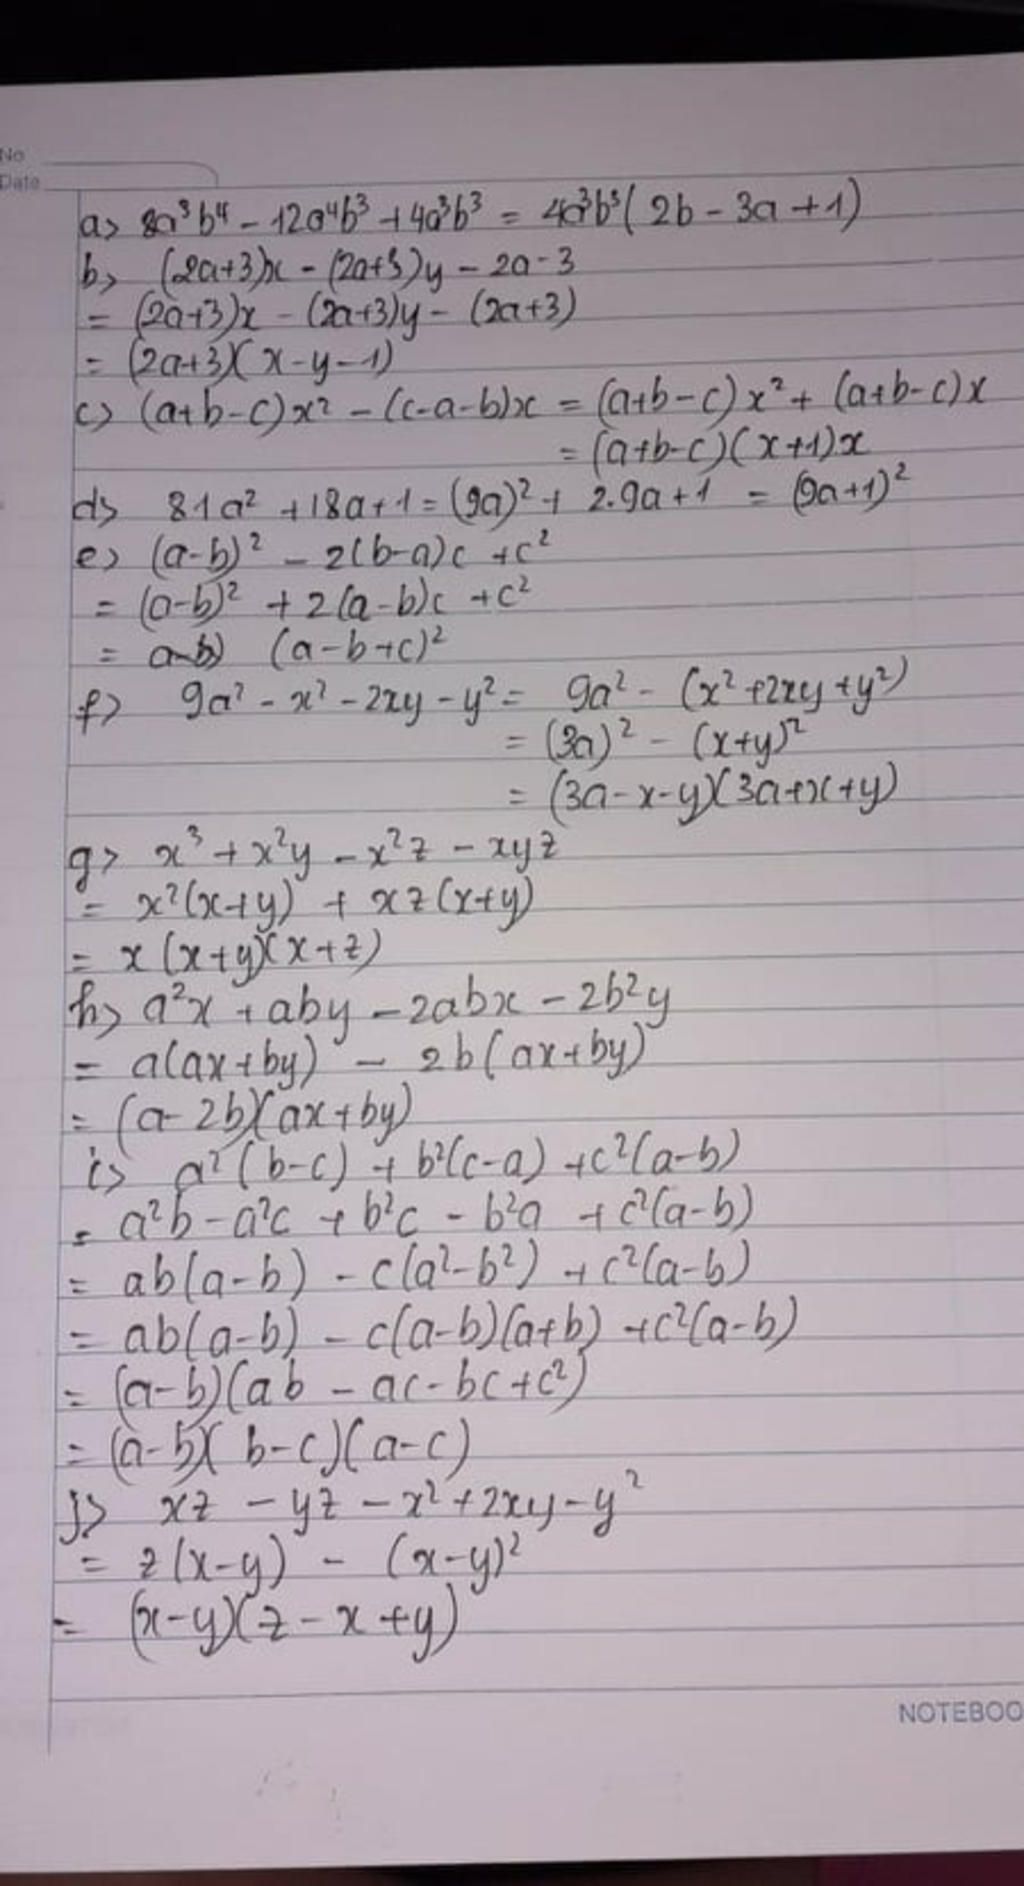 No
Date
a> 8a³b⁴ - 12a⁴b³ + 4a³b³ = 4a³b³(2b - 3a + 1)
b> (2a+3)x - (2a+3)y - 2a - 3
= (2a+3)x - (2a+3)y - (2a+3)
= (2a+3)(x-y-1)
c> (a+b-c)x² - (c-a-b)x = (a+b-c)x² + (a+b-c)x
= (a+b-c)(x+1)x
d> 81a² + 18a + 1 = (9a)² + 2.9a + 1 = (9a+1)²
e> (a-b)² - 2(b-a)c + c²
= (a-b)² + 2(a-b)c + c²
= (a-b+c)²
f> 9a² - x² - 2xy - y² = 9a² - (x² + 2xy + y²)
= (3a)² - (x+y)²
= (3a-x-y)(3a+x+y)
g> x³ + x²y - x²z - xyz
= x²(x+y) + xz(x+y)
= x(x+y)(x+z)
h> a²x + aby - 2abx - 2b²y
= a(ax+by) - 2b(ax+by)
= (a-2b)(ax+by)
i> a²(b-c) + b²(c-a) + c²(a-b)
= a²b - a²c + b²c - b²a + c²(a-b)
= ab(a-b) - c(a²-b²) + c²(a-b)
= ab(a-b) - c(a-b)(a+b) + c²(a-b)
= (a-b)(ab - ac - bc + c²)
= (a-b)(b-c)(a-c)
j> xz - yz - x² + 2xy - y²
= z(x-y) - (x-y)²
= (x-y)(z-x+y)
NOTEBOO